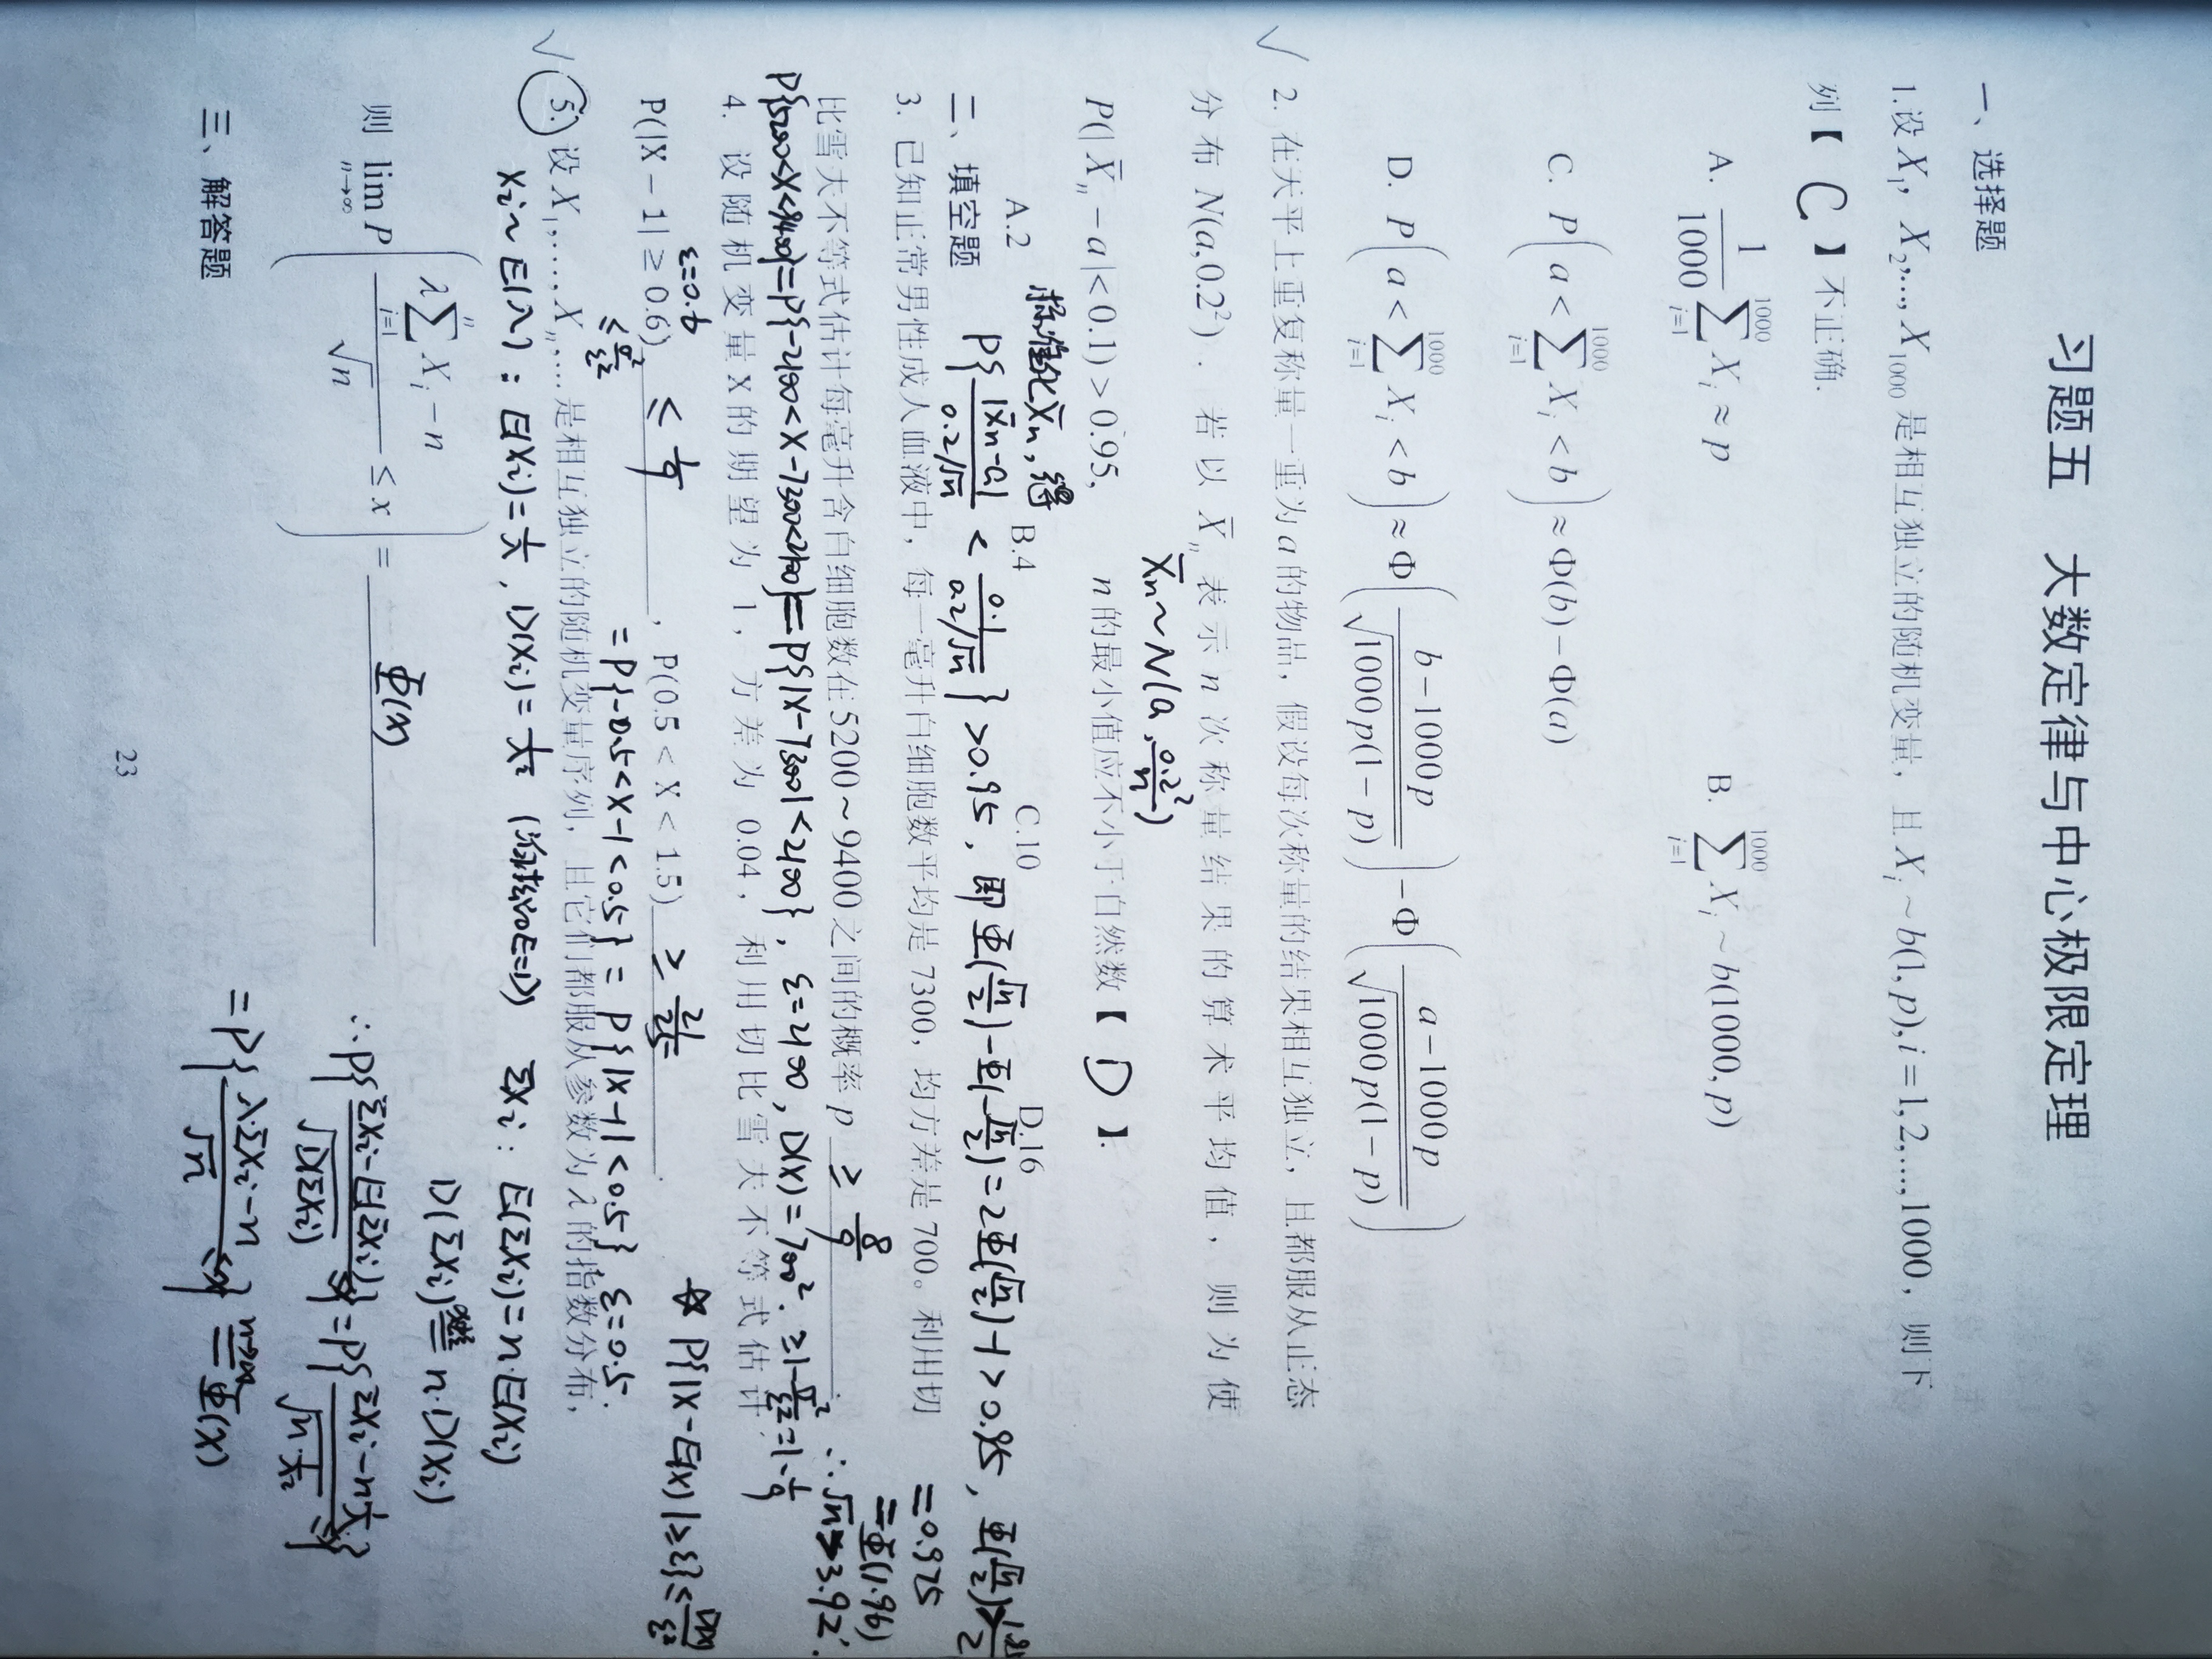 习题五 大数定律与中心极限定理
一、选择题
1.设 X₁, X₂,..., X₁₀₀₀ 是相互独立的随机变量，且 Xᵢ ~ b(1, p), i = 1, 2, ..., 1000，则下
列【 C 】不正确.
A. 1/1000 ∑_{i=1}^{1000} Xᵢ ≈ p B. ∑_{i=1}^{1000} Xᵢ ~ b(1000, p)
C. P( a < ∑_{i=1}^{1000} Xᵢ < b ) ≈ Φ(b) − Φ(a)
D. P( a < ∑_{i=1}^{1000} Xᵢ < b ) ≈ Φ( (b−1000p)/√(1000p(1−p)) ) − Φ( (a−1000p)/√(1000p(1−p)) )
√ 2. 在天平上重复称量一重为 a 的物品，假设每次称量的结果相互独立，且都服从正态
分布 N(a,0.2²) . 若以 X̄ₙ 表示 n 次称量结果的算术平均值，则为使
X̄n~N(a, 0.2²/n)
P(| X̄ₙ − a |< 0.1) > 0.95, n 的最小值应不小于自然数【 D 】.
标准化X̄n, 得
A.2 B.4 C.10 D.16
P{ |X̄n-a|/(0.2/√n) < 0.1/(0.2/√n) } >0.95, 即 Φ(√n/2)-Φ(-√n/2)=2Φ(√n/2)-1>0.95, Φ(√n/2)>1.95/2
二、填空题
=0.975
=Φ(1.96)
∴√n>3.92.
3. 已知正常男性成人血液中，每一毫升白细胞数平均是 7300，均方差是 700。利用切
比雪夫不等式估计每毫升含白细胞数在5200～9400之间的概率 p ≥ 8/9 .
P{5200<X<9400}=P{-2100<X-7300<2100}=P{|X-7300|<2100}, ε=2100, D(X)=700². ≥1-σ²/ε²=1-1/9
4. 设随机变量X的期望为 1，方差为 0.04，利用切比雪夫不等式估计
ε=0.6
P(|X − 1| ≥ 0.6) ≤ 1/9 , P(0.5 < X < 1.5) ≥ 21/25 .
☆ P{|X-E(X)|≥ε}≤D(X)/ε²
≤σ²/ε² =P{-0.5<X-1<0.5} = P{|X-1|<0.5}, ε=0.5.
√ 5. 设 X₁,..., Xₙ,... 是相互独立的随机变量序列，且它们都服从参数为 λ 的指数分布，
Xi~E(λ): E(Xi)=1/λ, D(Xi)=1/λ² (泊松的E=D) ΣXi: E(ΣXi)=n·E(Xi)
D(ΣXi) 独立= n·D(Xi)
则 lim_{n→∞} P( (λ∑_{i=1}^{n} Xᵢ − n)/√n ≤ x ) = Φ(x)
∴P{ (ΣXi-E(ΣXi))/√D(ΣXi) ≤x}=P{ (ΣXi-n·1/λ)/√(n·1/λ²) ≤x}
=P{ (λ·ΣXi-n)/√n ≤x} n→∞= Φ(x)
三、解答题
23